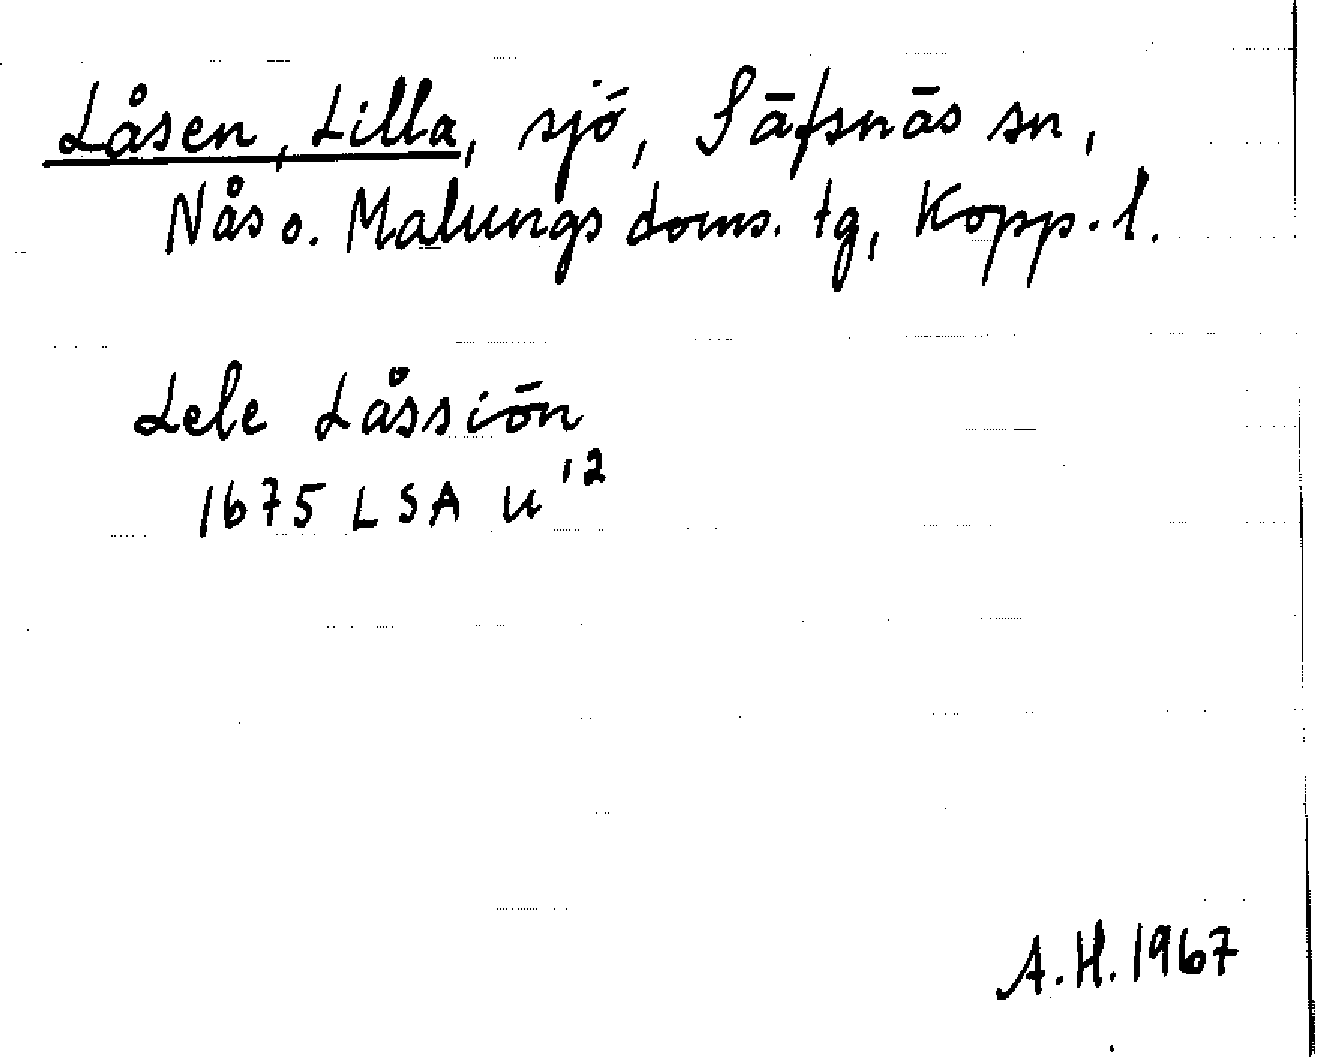 Låsen, Lilla, sjö, Säfsnäs sn,
Nås o. Malungs doms. tg, Kopp. l.
Lele Låssiön
1675 LSA U'2
A.H. 1967